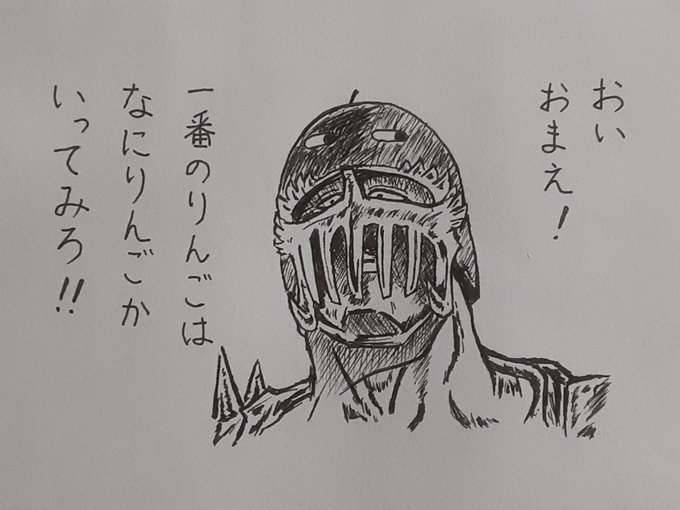 おい
おまえ！
一番のりんごは
なにりんごか
いってみろ！！